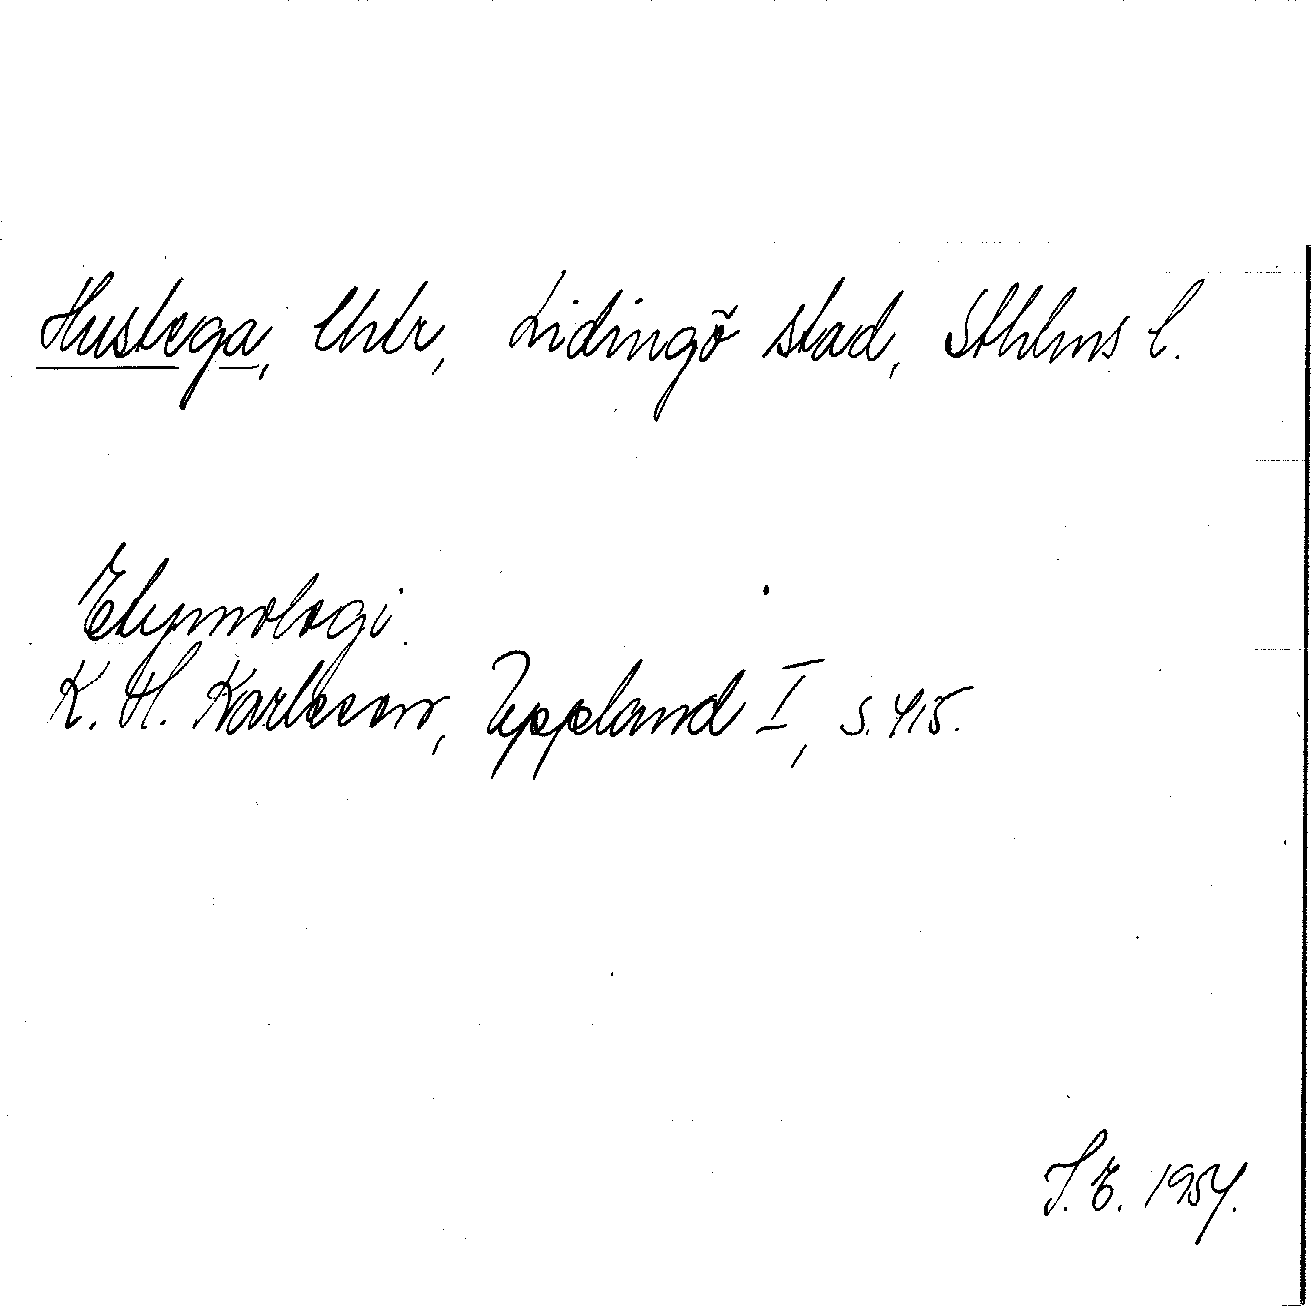 Hustega, Uhlr, Lidingö stad, Sthlms l.
Etymologi.
K. H. Karlsson, Uppland I, s. 415.
J. E. 1954.